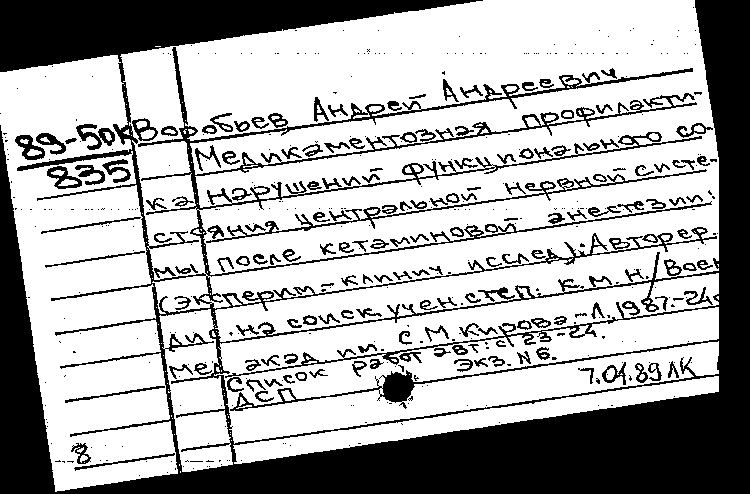 89-50К
835
Воробьев Андрей Андреевич.
Медикаментозная профилакти-
ка нарушений функционального со-
стояния центральной нервной систе-
мы после кетаминовой анестезии:
(эксперим.-клинич. исслед.): Автореф.
дис. на соиск. учен. степ. к.м.н./Воен
мед. акад. им. С.М. Кирова.-Л., 1987.-24с
Список работ авт: с. 23-24.
ДСП Экз. N6.
7.04.89 ЛК
8